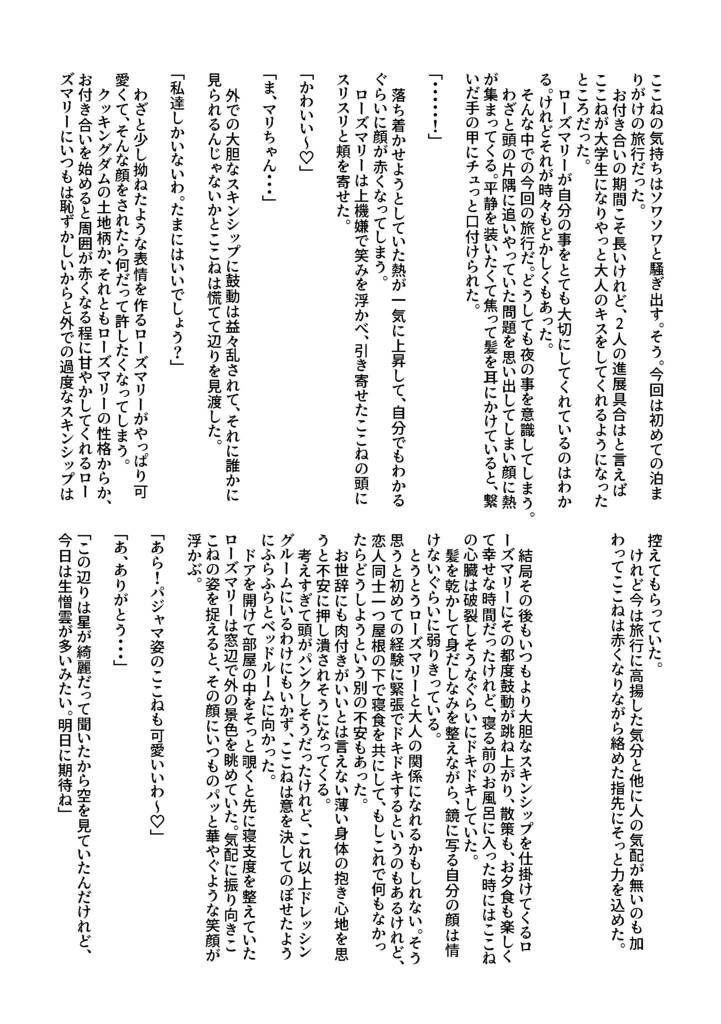 ここねの気持ちはソワソワと騒ぎ出す。そう。今回は初めての泊ま
りがけの旅行だった。
お付き合いの期間こそ長いけれど、2人の進展具合はと言えば
ここねが大学生になりやっと大人のキスをしてくれるようになった
ところだった。
ローズマリーが自分の事をとても大切にしてくれているのはわか
る。けれどそれが時々もどかしくもあった。
そんな中での今回の旅行だ。どうしても夜の事を意識してしまう。
わざと頭の片隅に追いやっていた問題を思い出してしまい顔に熱
が集まってくる。平静を装いたくて焦って髪を耳にかけていると、繋
いだ手の甲にチュっと口付けられた。
「・・・・・・!」
落ち着かせようとしていた熱が一気に上昇して、自分でもわかる
ぐらいに顔が赤くなってしまう。
ローズマリーは上機嫌で笑みを浮かべ、引き寄せたここねの頭に
スリスリと頬を寄せた。
「かわいい〜♡」
「ま、マリちゃん・・・」
外での大胆なスキンシップに鼓動は益々乱されて、それに誰かに
見られるんじゃないかとここねは慌てて辺りを見渡した。
「私達しかいないわ。たまにはいいでしょう?」
わざと少し拗ねたような表情を作るローズマリーがやっぱり可
愛くて、そんな顔をされたら何だって許したくなってしまう。
クッキングダムの土地柄か、それともローズマリーの性格からか、
お付き合いを始めると周囲が赤くなる程に甘やかしてくれるロー
ズマリーにいつもは恥ずかしいからと外での過度なスキンシップは
控えてもらっていた。
けれど今は旅行に高揚した気分と他に人の気配が無いのも加
わってここねは赤くなりながら絡めた指先にそっと力を込めた。
結局その後もいつもより大胆なスキンシップを仕掛けてくるロ
ーズマリーにその都度鼓動が跳ね上がり、散策も、お夕食も楽しく
て幸せな時間だったけれど、寝る前のお風呂に入った時にはここね
の心臓は破裂しそうなぐらいにドキドキしていた。
髪を乾かして身だしなみを整えながら、鏡に写る自分の顔は情
けないぐらいに弱りきっている。
とうとうローズマリーと大人の関係になれるかもしれない。そう
思うと初めての経験に緊張でドキドキするというのもあるけれど、
恋人同士一つ屋根の下で寝食を共にして、もしこれで何もなかっ
たらどうしようという別の不安もあった。
お世辞にも肉付きがいいとは言えない薄い身体の抱き心地を思
うと不安に押し潰されそうになってくる。
考えすぎて頭がパンクしそうだったけれど、これ以上ドレッシン
グルームにいるわけにもいかず、ここねは意を決してのぼせたよう
にふらふらとベッドルームに向かった。
ドアを開けて部屋の中をそっと覗くと先に寝支度を整えていた
ローズマリーは窓辺で外の景色を眺めていた。気配に振り向きこ
こねの姿を捉えると、その顔にいつものパッと華やぐような笑顔が
浮かぶ。
「あら!パジャマ姿のここねも可愛いいわ〜♡」
「あ、ありがとう・・・」
「この辺りは星が綺麗だって聞いたから空を見ていたんだけれど、
今日は生憎雲が多いみたい。明日に期待ね」